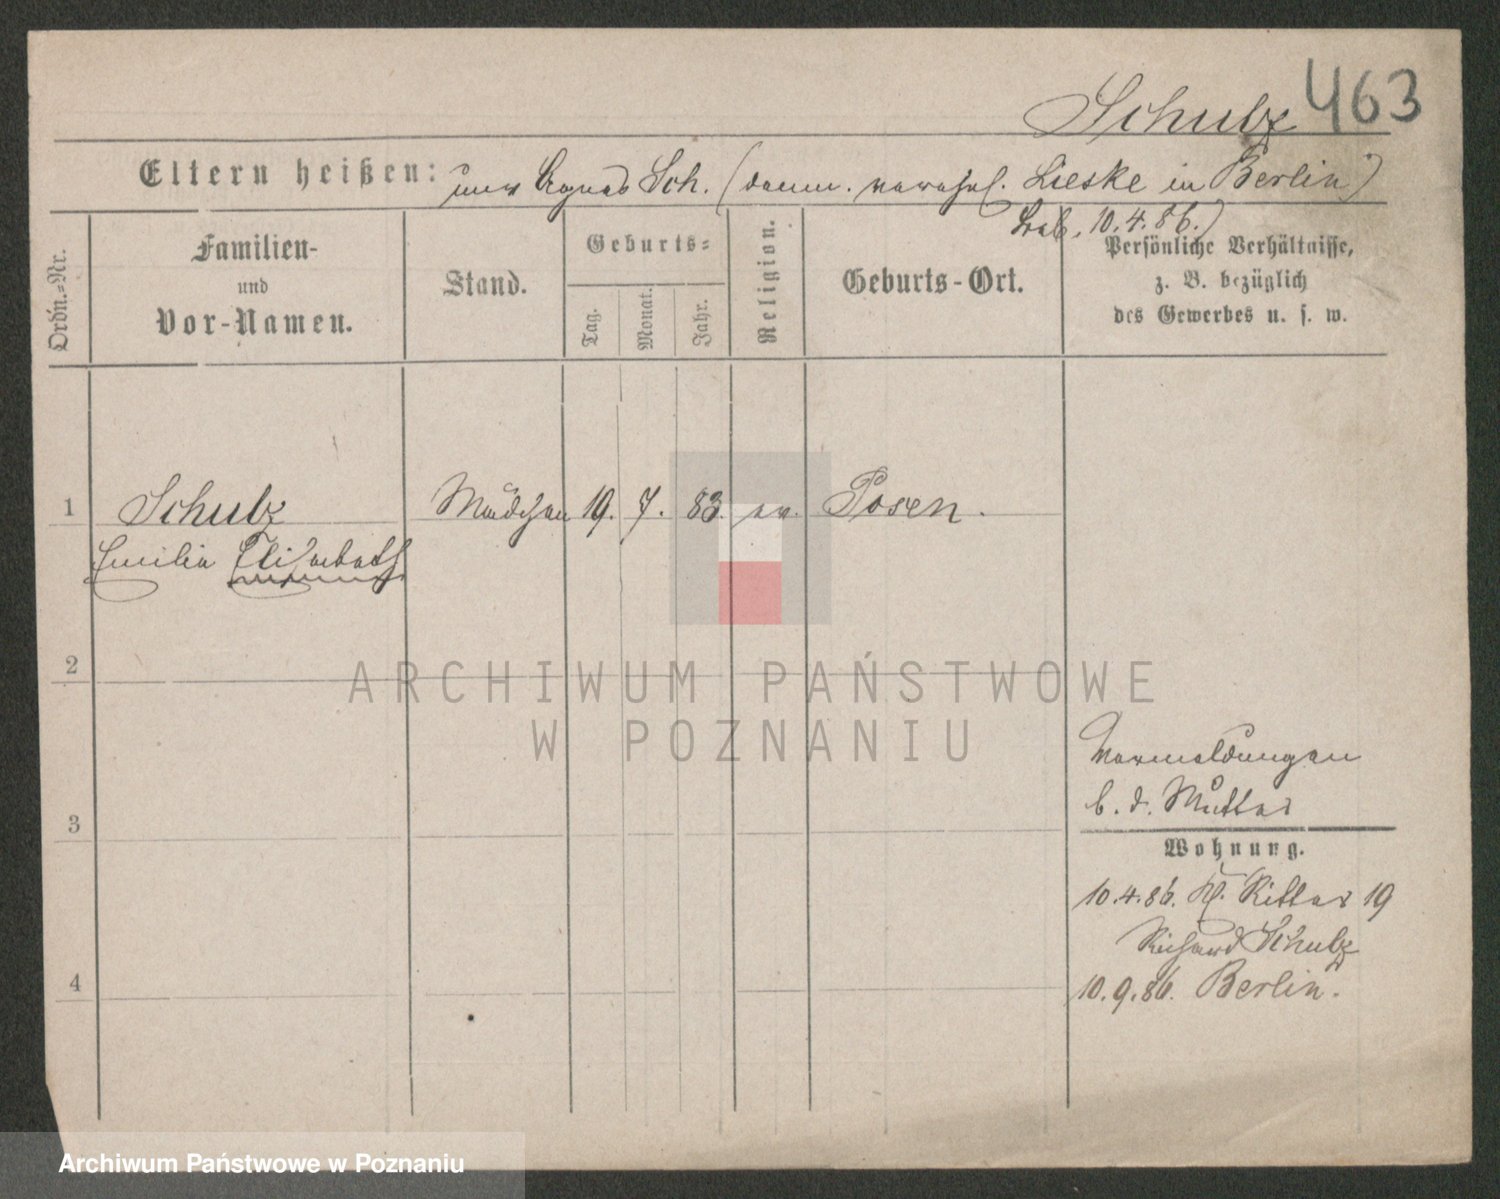 Schulz 463
Eltern heißen: unv. Agnes Sch. (demn. verehel. Lieske in Berlin)
10.4.86.)
Ordn.-Nr.
Familien-
und
Vor-Namen.
Stand.
Geburts-
Tag.
Monat.
Jahr.
Religion.
Geburts-Ort.
Persönliche Verhältnisse,
z. B. bezüglich
des Gewerbes u. s. w.
1 Schulz Mädchen 19. 7. 83. ev. Posen.
Emilie Elisabeth
2
3
4
Vermeldungen
b. d. Mutter
Wohnung.
10.4.86. Kl. Ritter 19
Richard Schulz
10.9.86. Berlin.
ARCHIWUM PAŃSTWOWE
W POZNANIU
Archiwum Państwowe w Poznaniu